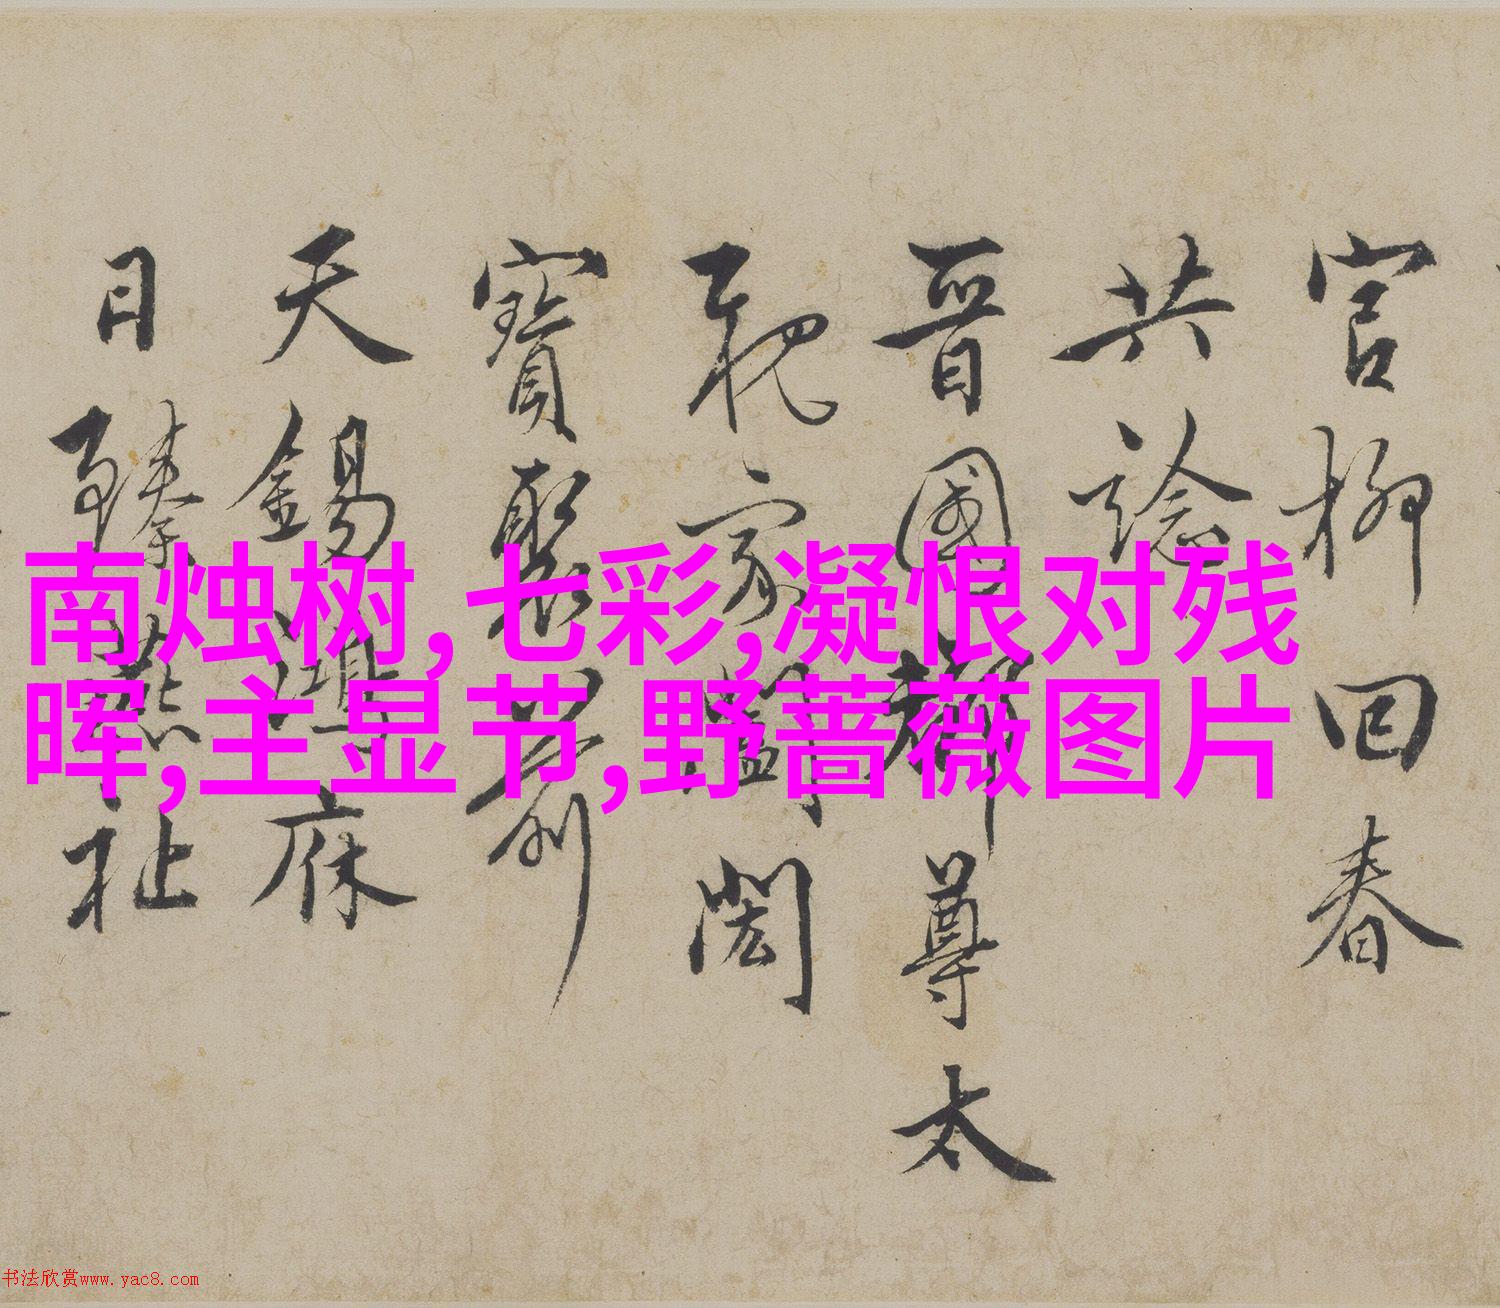 官柳回春
共謐
晉國
尊太
家
閎
寶
天錫鴻庥
日臻燕祉
南烛树,七彩,凝恨对残
晖,主显节,野蔷薇图片
书法欣赏www.yac8.com